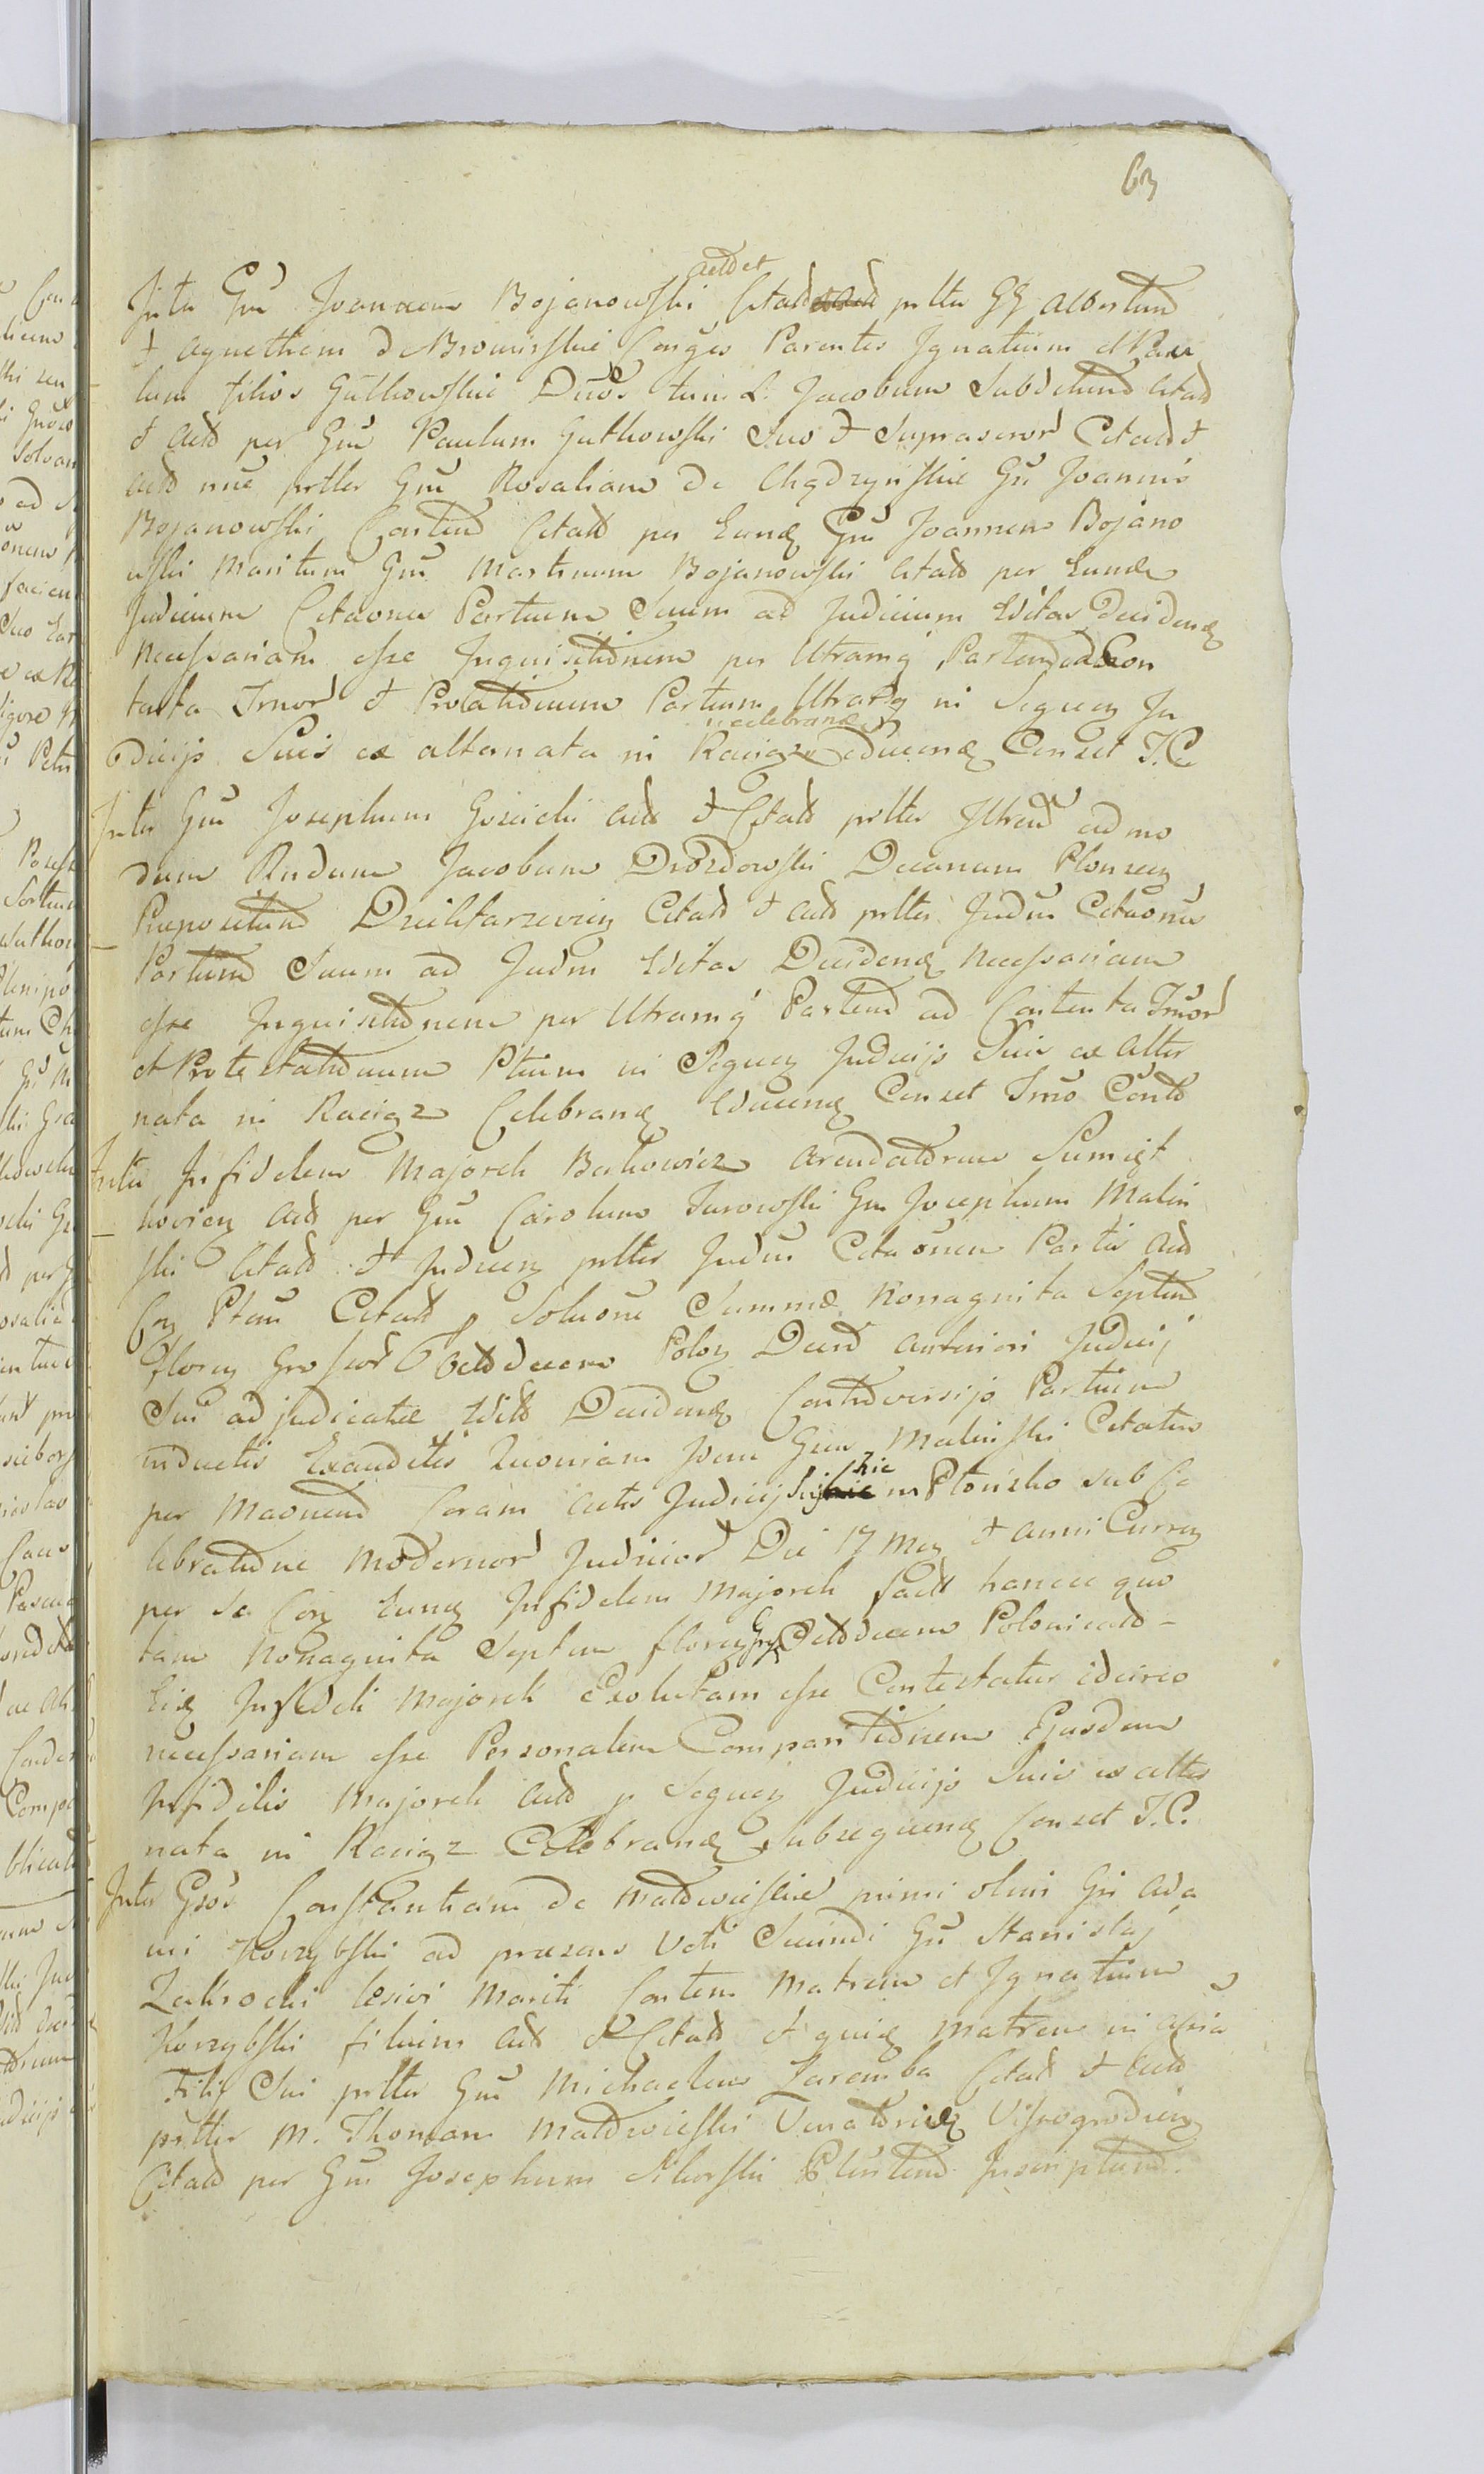 63
Actd et
Inter Gm Joannem Bojanowski Citatd pstter GG Albertum
et Agnethem de Bromirskie Conges Parentes Ignatium et Pau
lum filios Gutkowskie Duos tum L. Jacobum Subdelund Citatd
et Actd per Gm Paulum Gutkowski Suo et Suprascror Citatd et
Actd nue pstter Gm Rosaliam de Chądzyńskie Gn Joannis
Bojanowski Contem Citatd per Eund Gm Joannem Bojano
wski Maritum Gm Martinum Bojanowski Citatd per Eundem
Judicium Citaones Partium Suum ad Judicium Editas Decidend
Necessariam esse Inquisitionem per Utramq Partem ad Con
tenta Tmor et Protationum Partium Utrarq in Sequen Ju
celebrand
dicijs Suis ex alternata in Raciąz educend Censet J. C.
Inter Gm Josephum Gościcki Actd et Citatd pstter Illrem ad mo
dum Rndum Jacobum Drozdowski Decanum Plonscen
Prepositum Dziektarzevien Citatd et Actd pstter Judm Citaones
Partium Suum ad Judm Editas Decidend Necessariam
esse Inquisitionem per Utramq Partem ad Contenta Tmor
et Protestationum Ptium in Sequen Judicijs Suis ex Alter
nata in Raciąz Celebrand Educend Censet Tmo Contd
Inter Infidelem Majorek Berkowicz Arendatorem Sumięt
kovien Actd per Gm Carolum Turowski Gm Josephum Malin
ski Citatd et Inducen pstter Judm Citaonem Partis Actd
Con Ptem Citatd p Soluone Summæ Nonaginta Septem
floren Grossor Octodecem Polon Decd anteriori Judicij
Sui adjudicatæ Editd Decidend Controversijs Partium
inductis Exauditis Quoniam Idem Gsus Malinski Citatus
hic
per Manuend Coram Actis Judicij Suj in Płońsko sub Ce
lebratione Modernor Judicior Die 17 May et anni Curren
per se Con Eund Infidelem Majorek factd hancce quo
tam Nonaginta Septem floren Gr Octodecem Polonicald
Eid Infideli Majorek Exolutam esse Contestatur idcirco
necessariam esse Personalem Comparitionem Ejusdem
Infidelis Majorek Actd p Sequen Judicijs Suis ex alter
nata in Raciąz Celebrand Subsequend Censet J. C.
Inter Gsos Constantiam de Mattowieskie primi olim Gn Ada
mi Korzybski ad præsens Voti Secundi Gn Stanislaj
Zakrocki lesivi Mariti Contem Matrem et Ignatium
Korzybski filium Actd et Citatd et quid Matrem in asia
Filij Sui pstter Gm Michaelem Zaremba Citatd et Actd
pstter M. Thomam Mattowieski Venatorid Vissogrodien
Citatd per Gm Josephum Nikorski Plentem Inscriptum